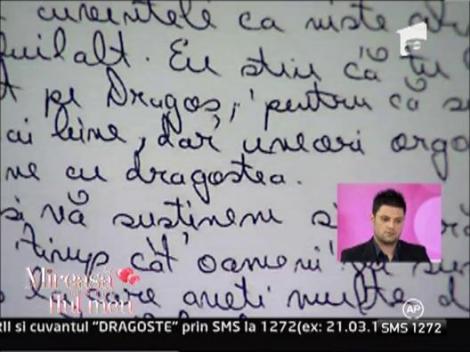 cuvintele ca niste
uilalt. Eu stiu că tu
t pe Dragoș, pentru că s
ai bine, dar uneori orgo
ne cu dragostea.
si vă sustinem si
timp cât oameni
aveti multe d
Mireasă
fiul meu
AP
RII si cuvantul "DRAGOSTE" prin SMS la 1272(ex: 21.03.1
SMS 1272